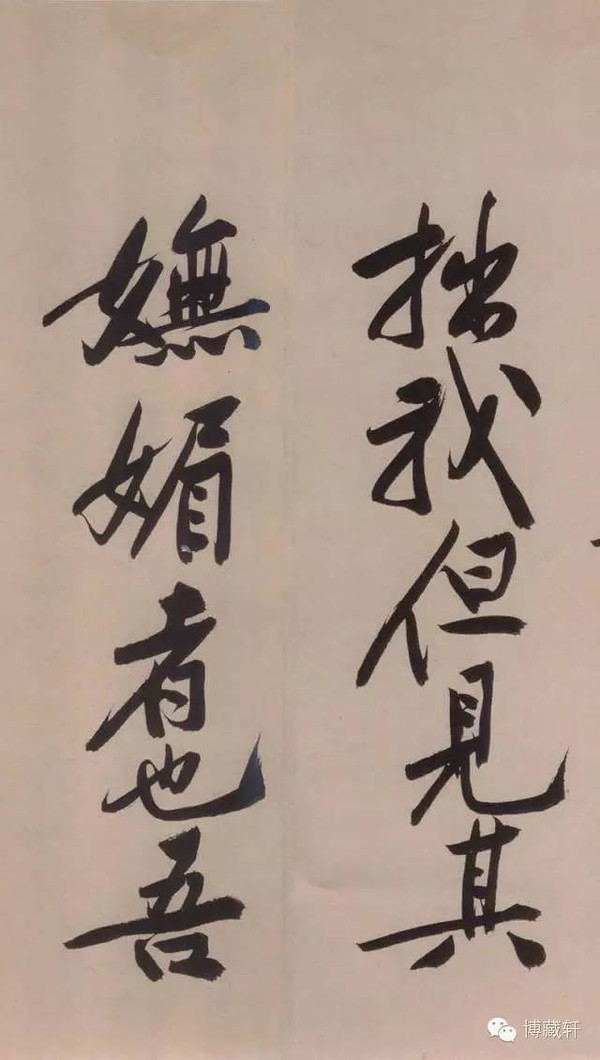 拙我但見其
嫵媚者也吾
博藏轩